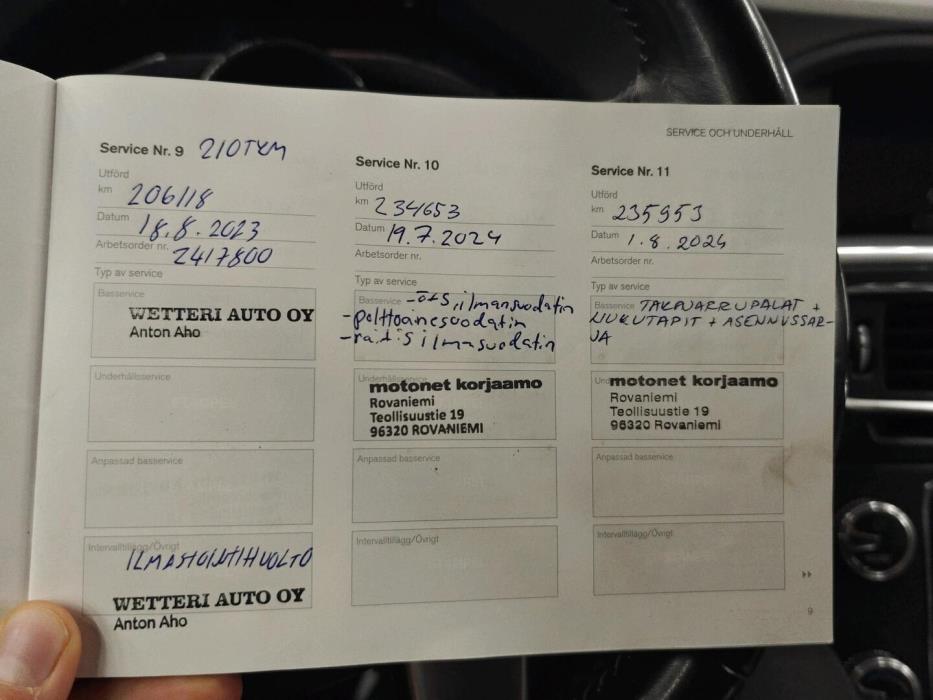 SERVICE OCH UNDERHÅLL
Service Nr. 9 210TKM
Utförd
km 206118
Datum 18.8.2023
Arbetsorder nr. 2417800
Typ av service
Basservice
WETTERI AUTO OY
Anton Aho
Underhållsservice
Anpassad basservice
Intervalltillägg/Övrigt
ILMASTOINTIHUOLTO
WETTERI AUTO OY
Anton Aho
Service Nr. 10
Utförd
km 234653
Datum 19.7.2024
Arbetsorder nr.
Typ av service
Basservice -ö+s, ilmansuodatin
-polttoainesuodatin
-raitis ilmasuodatin
motonet korjaamo
Rovaniemi
Teollisuustie 19
96320 ROVANIEMI
Anpassad basservice
Intervalltillägg/Övrigt
Service Nr. 11
Utförd
km 235953
Datum 1.8.2024
Arbetsorder nr.
Typ av service
Basservice TAKAJARRUPALAT +
LIUKUTAPIT + ASENNUSSAR-
JA
motonet korjaamo
Rovaniemi
Teollisuustie 19
96320 Rovaniemi
Anpassad basservice
Intervalltillägg/Övrigt
9